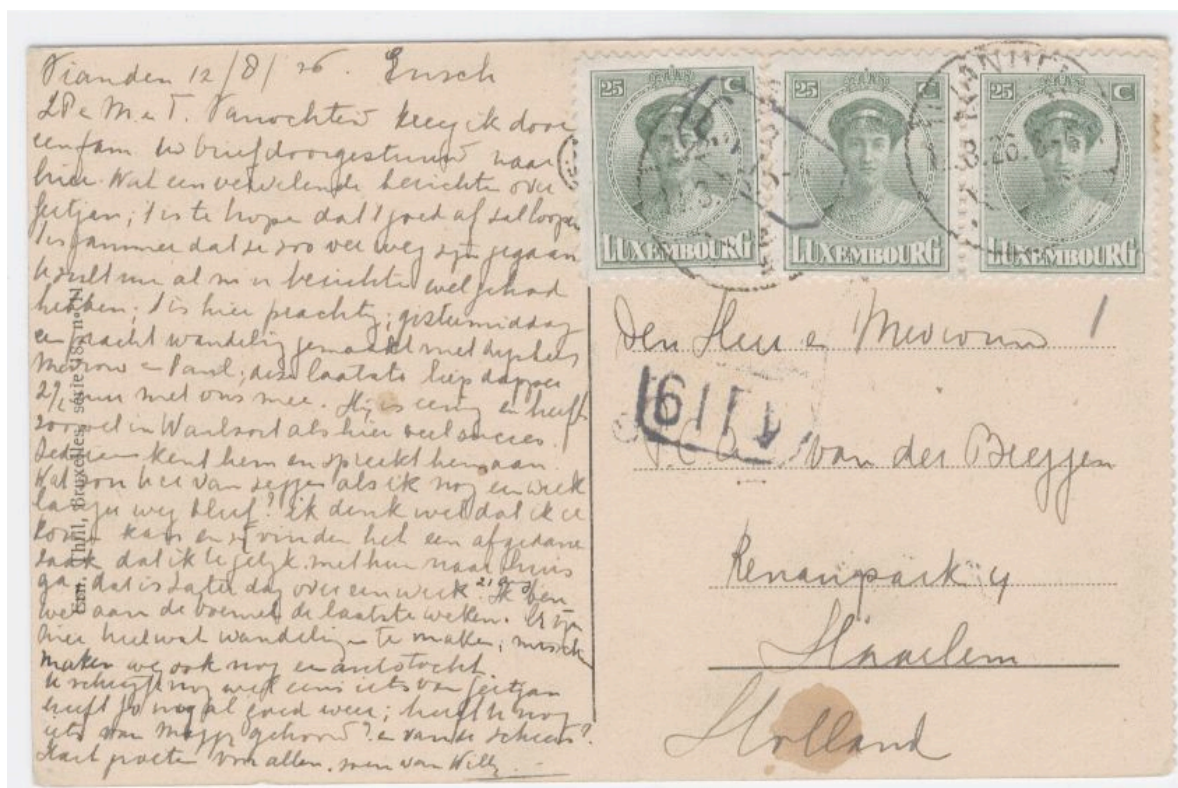 Vianden 12/8/26. Ensch
L P e M. e T. Vanochtend kreeg ik door
een fam. Uw brief doorgestuurd naar
hier. Wat een vervelende berichten over
Geitjan; 't is te hopen dat 't goed af zal loopen
't is jammer dat ze zoo ver weg zijn gegaan
U zult nu al m'n berichten wel gehad
hebben; 't is hier prachtig; gistermiddag
een pracht wandeling gemaakt met
Mevrouw en Paul; deze laatste liep dapper
2½ uur met ons mee. Hij is eenig en heeft
zoowel in Waulsort als hier veel succes.
Iedereen kent hem en spreekt hem aan.
Wat zou u er van zeggen als ik nog een week
langer weg bleef? Ik denk wel dat ik er
komen kan en vinden het een afgedane
zaak dat ik tegelijk met hun naar huis
ga, dat is Zaterdag over een week 21 Aug. Ik ben
wel aan de boemel de laatste weken. Er zijn
hier heel wat wandelingen te maken, misschien
maken we ook nog een autotocht.
U schrijft nog wel eens iets van Geitjan
heeft nogal goed weer; heeft U nog
iets van gehoord? en van de ?
Hart groeten van allen, zoen van Willy
Em. Thill, Bruxelles, série 18, n°
25 C
LUXEMBOURG
25 C
LUXEMBOURG
25 C
LUXEMBOURG
VIANDEN
Den Heer en Mevrouw
1119
van der Breggen
Renanpark 4
Haarlem
Holland